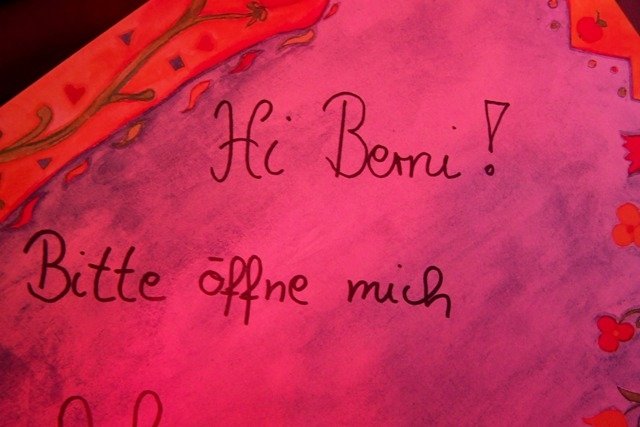 Hi Berni!
Bitte öffne mich